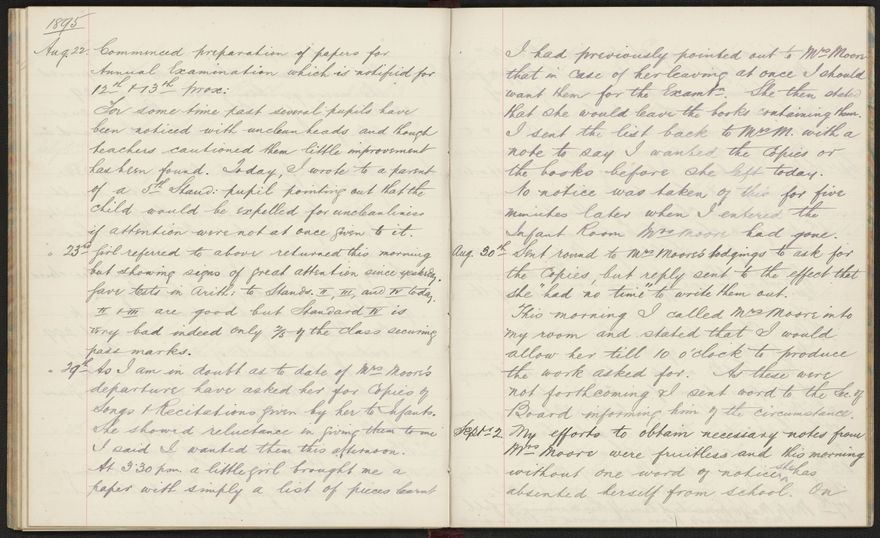 1895
Aug. 22. Commenced preparation of papers for
Annual Examination which is notified for
12th & 13th prox:
For some time past several pupils have
been noticed with unclean heads and though
teachers cautioned them little improvement
has been found. Today, I wrote to a parent
of a 5th Stand: pupil pointing out that the
child would be expelled for uncleanliness
if attention were not at once given to it.
" 23rd Girl referred to above returned this morning
but showing signs of great attention since yesterday.
Gave tests in Arith: to Stands. II, III, and IV today.
II & III are good but Standard IV is
very bad indeed only 2/5 of the class securing
pass marks.
" 29th As I am in doubt as to date of Mrs Moore's
departure have asked her for Copies of
Songs & Recitations given by her to Infants.
She showed reluctance in giving them to me
I said I wanted them this afternoon.
At 3.30 p.m. a little girl brought me a
paper with simply a list of pieces learnt
I had previously pointed out to Mrs Moore
that in case of her leaving at once I should
want them for the Examtn. She then stated
that she would leave the books containing them.
I sent the list back to Mrs M. with a
note to say I wanted the Copies or
the books before she left today.
No notice was taken of this for five
minutes later when I entered the
Infant Room Mrs Moore had gone.
Aug. 30th Sent round to Mrs Moore's lodgings to ask for
the Copies, but reply sent to the effect that
she "had no time" to write them out.
This morning I called Mrs Moore into
my room and stated that I would
allow her till 10 o'clock to produce
the work asked for. As these were
not forthcoming I sent word to the Sec. of
Board informing him of the circumstance.
Sept. 2 My efforts to obtain necessary notes from
Mrs Moore were fruitless and this morning
without one word of notice she has
absented herself from school. On